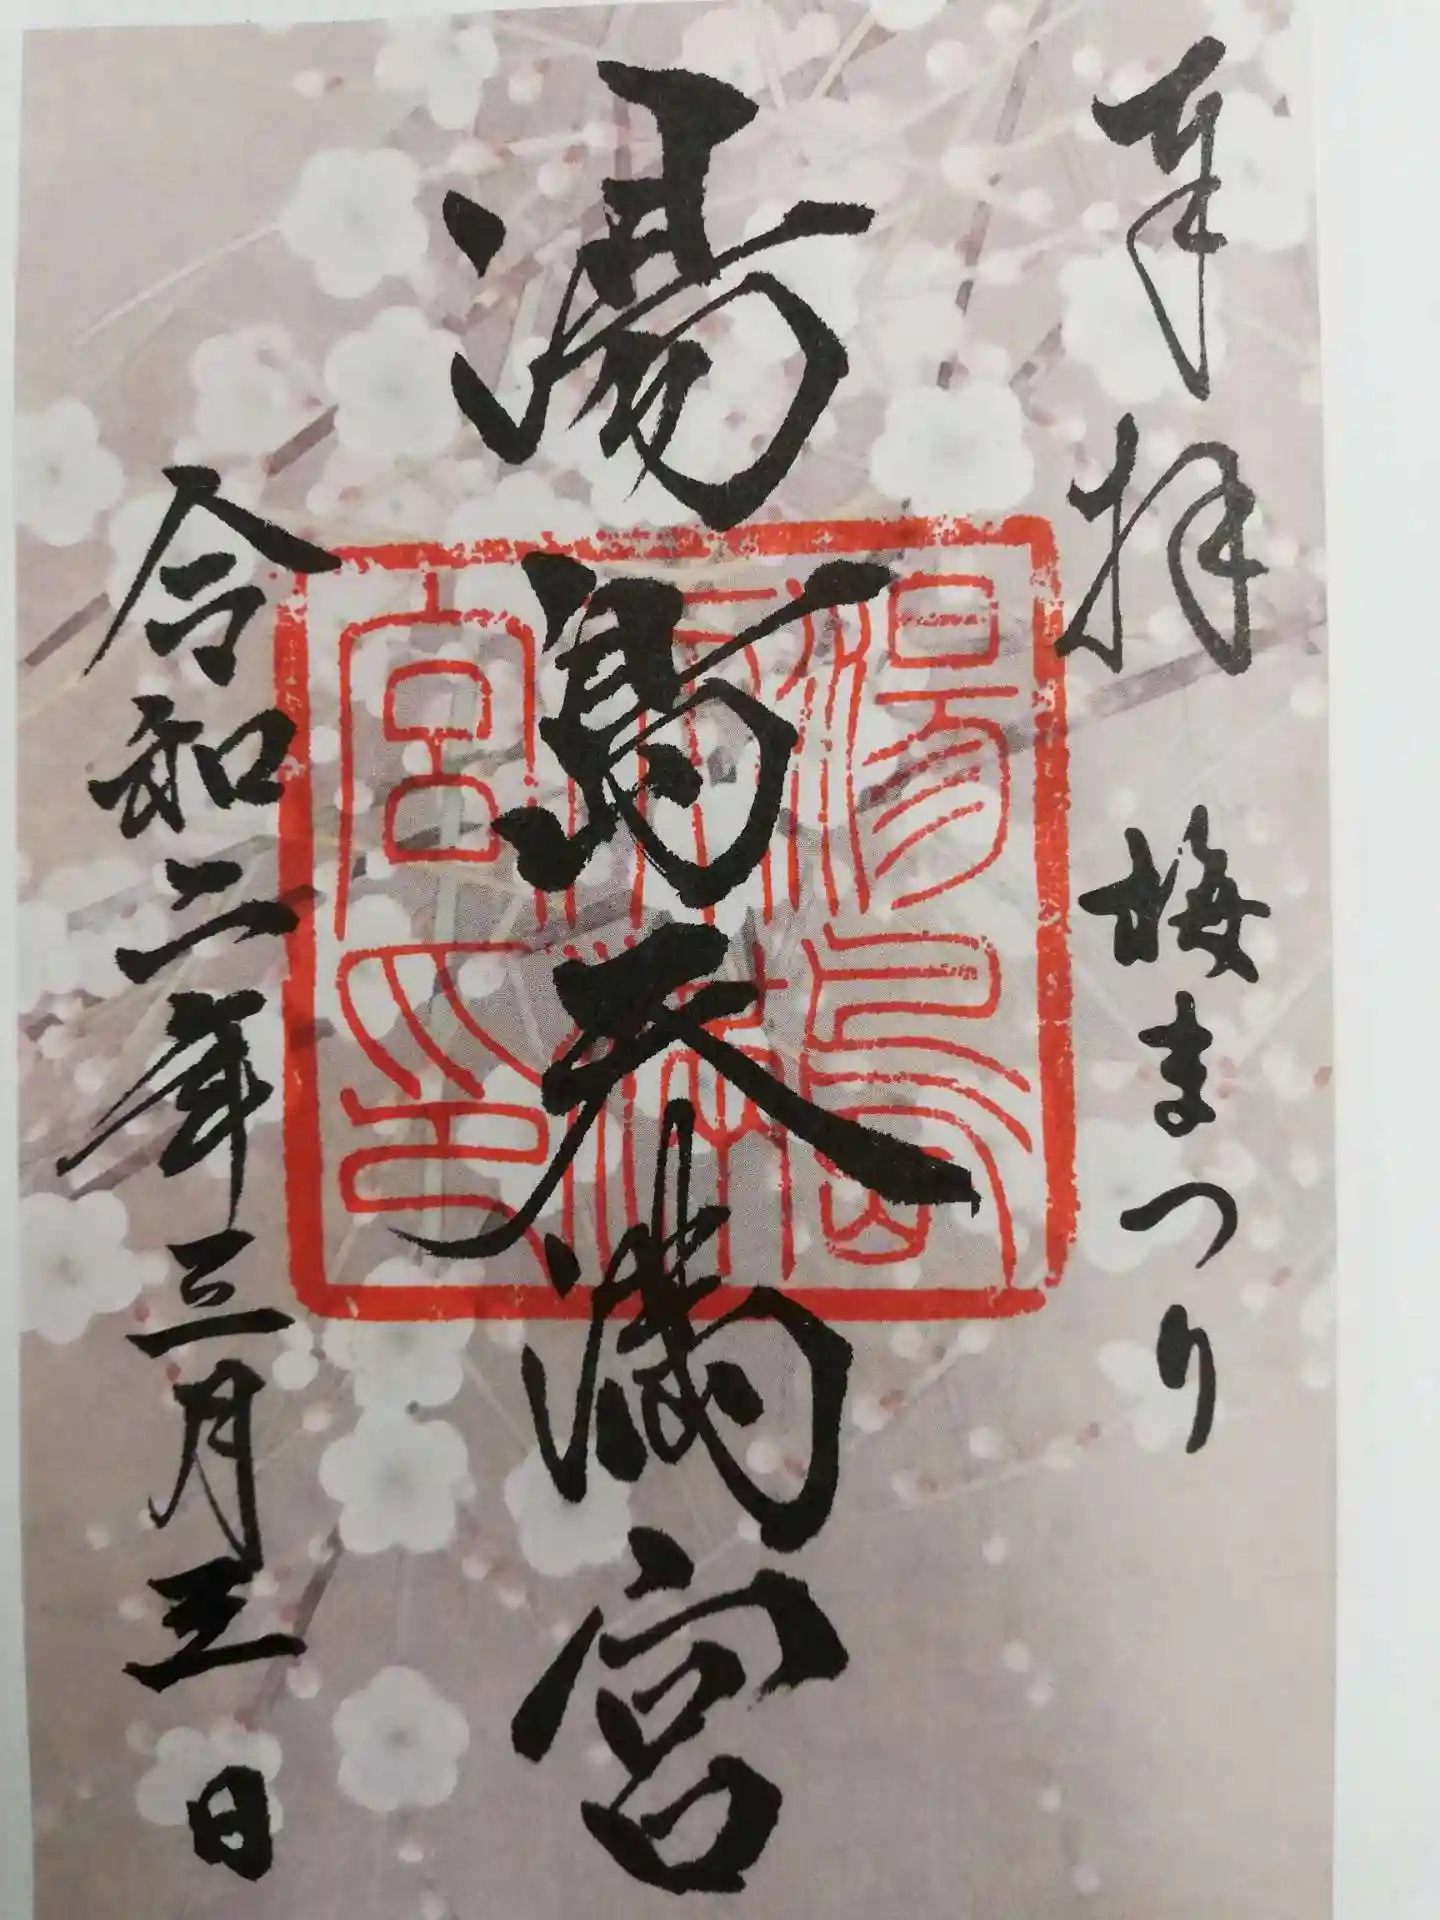 奉拝 梅まつり
湯島天満宮
令和二年三月三日
湯島
天満
宮之印